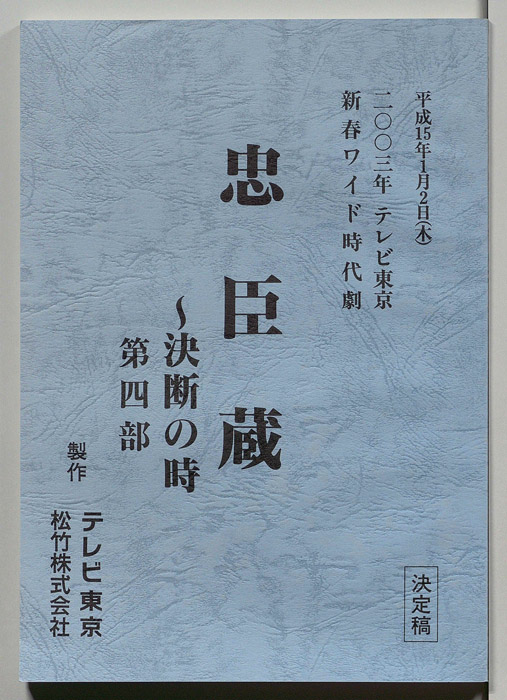 平成15年1月2日(木)
二〇〇三年 テレビ東京
新春ワイド時代劇
忠臣蔵
～決断の時
第四部
製作
テレビ東京
松竹株式会社
決定稿